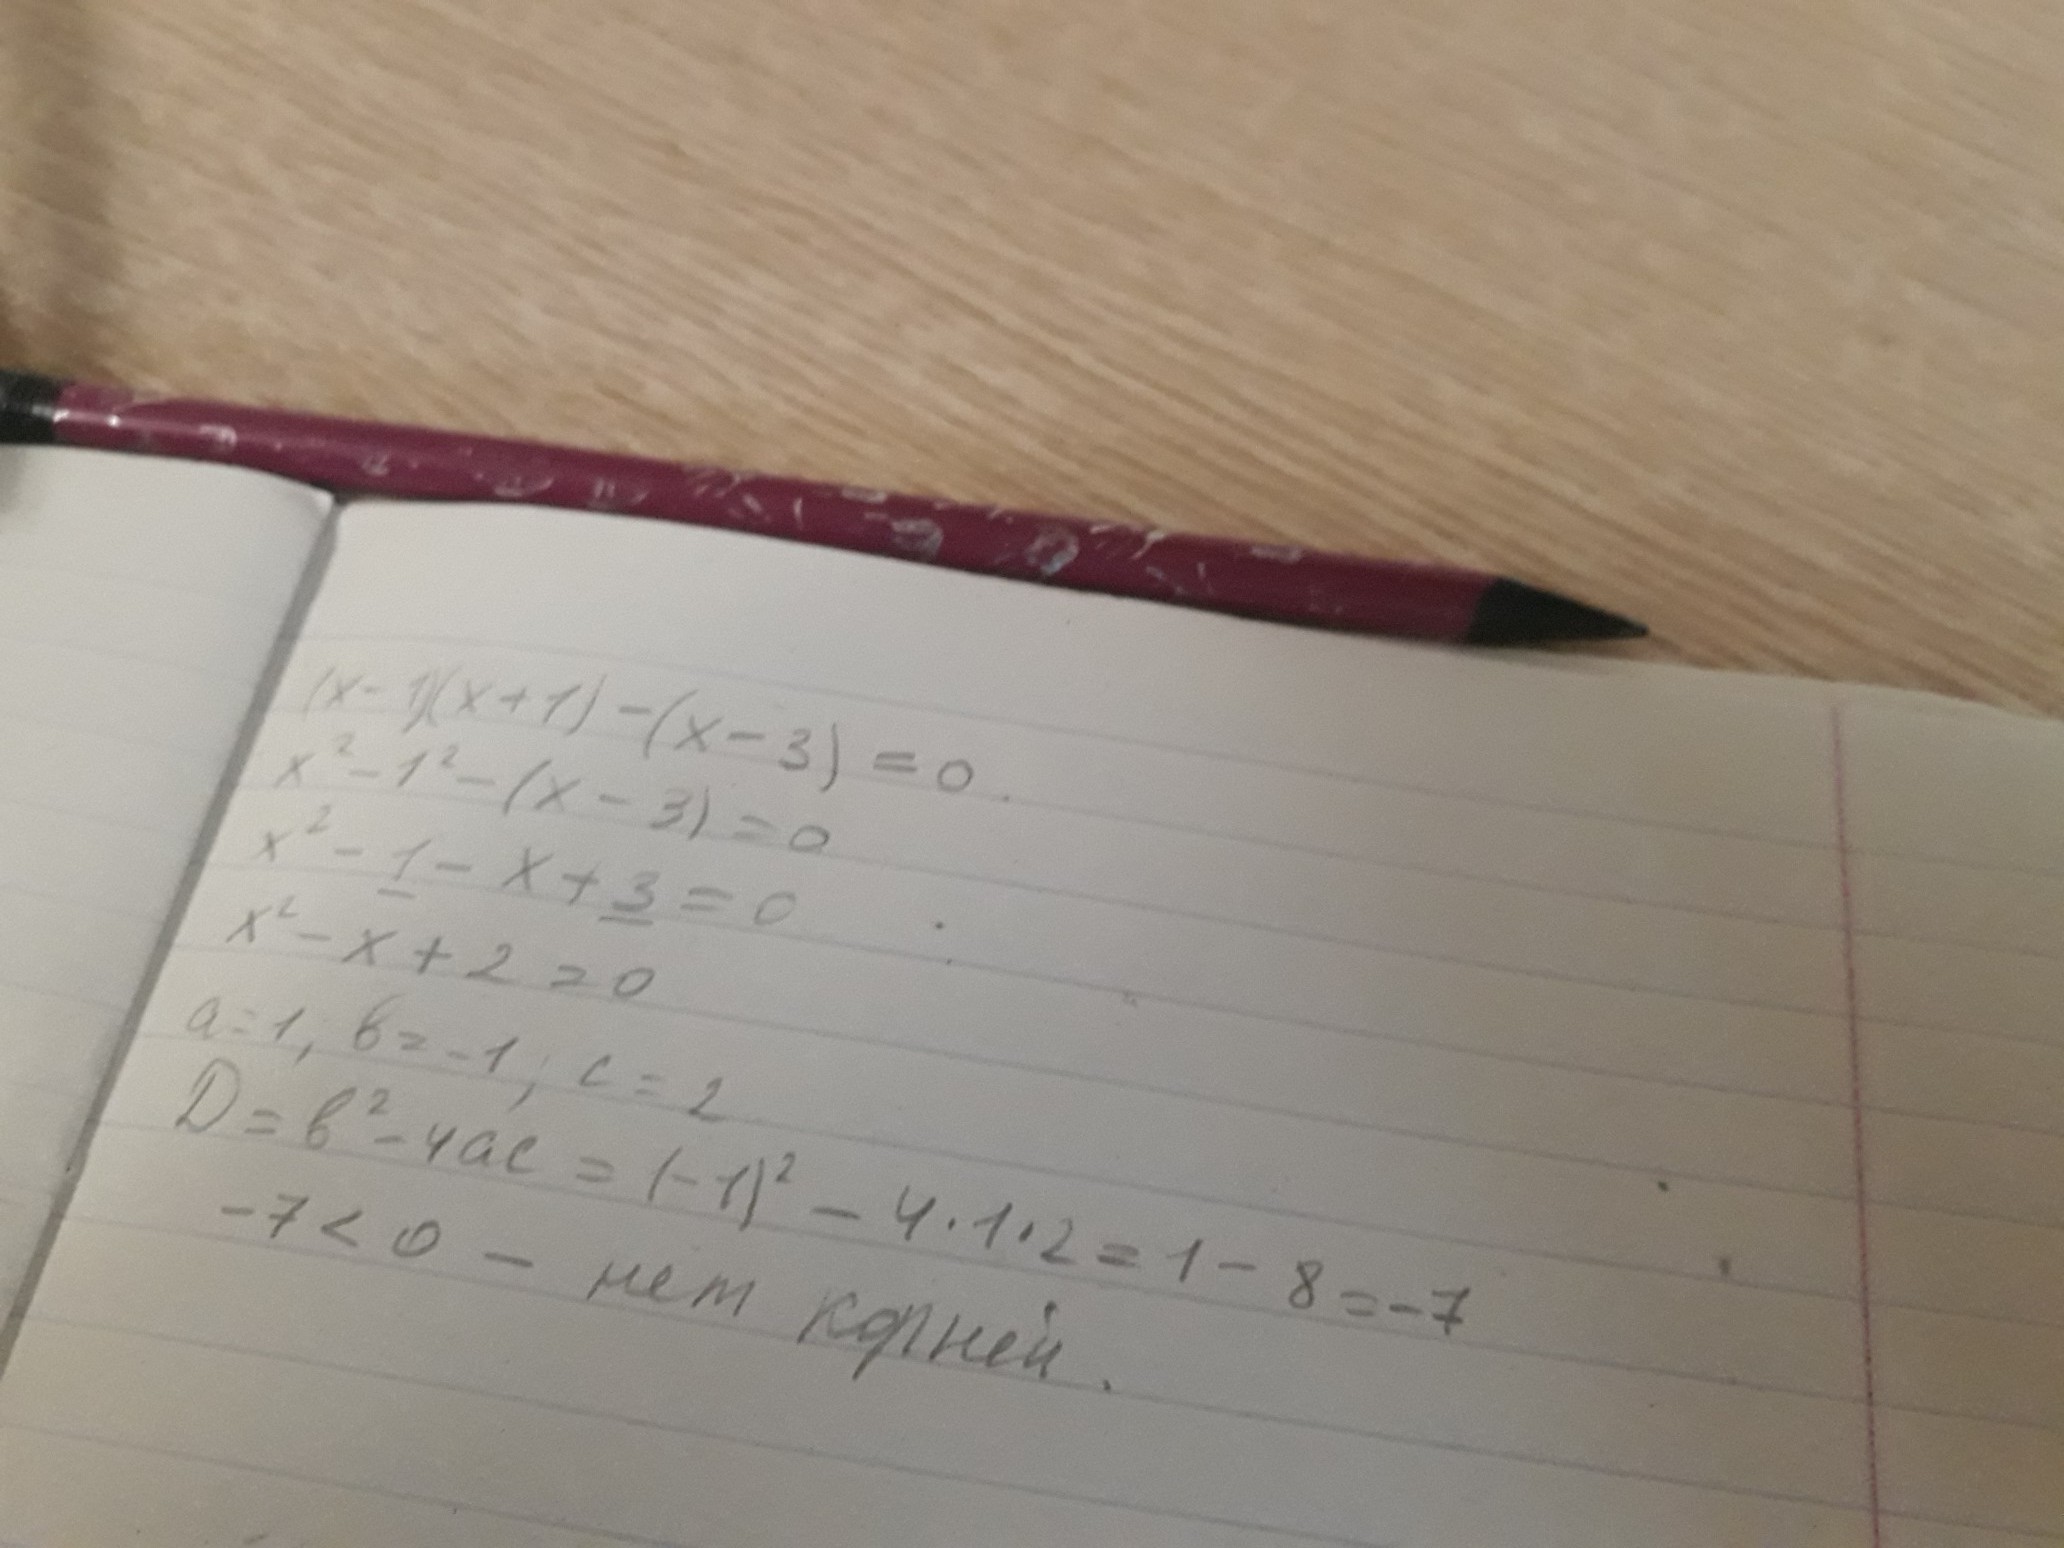 (x-1)(x+1)-(x-3)=0
x²-1²-(x-3)=0
x²-1-x+3=0
x²-x+2=0
a=1; b=-1; c=2
D=b²-4ac=(-1)²-4·1·2=1-8=-7
-7<0 - нет корней.